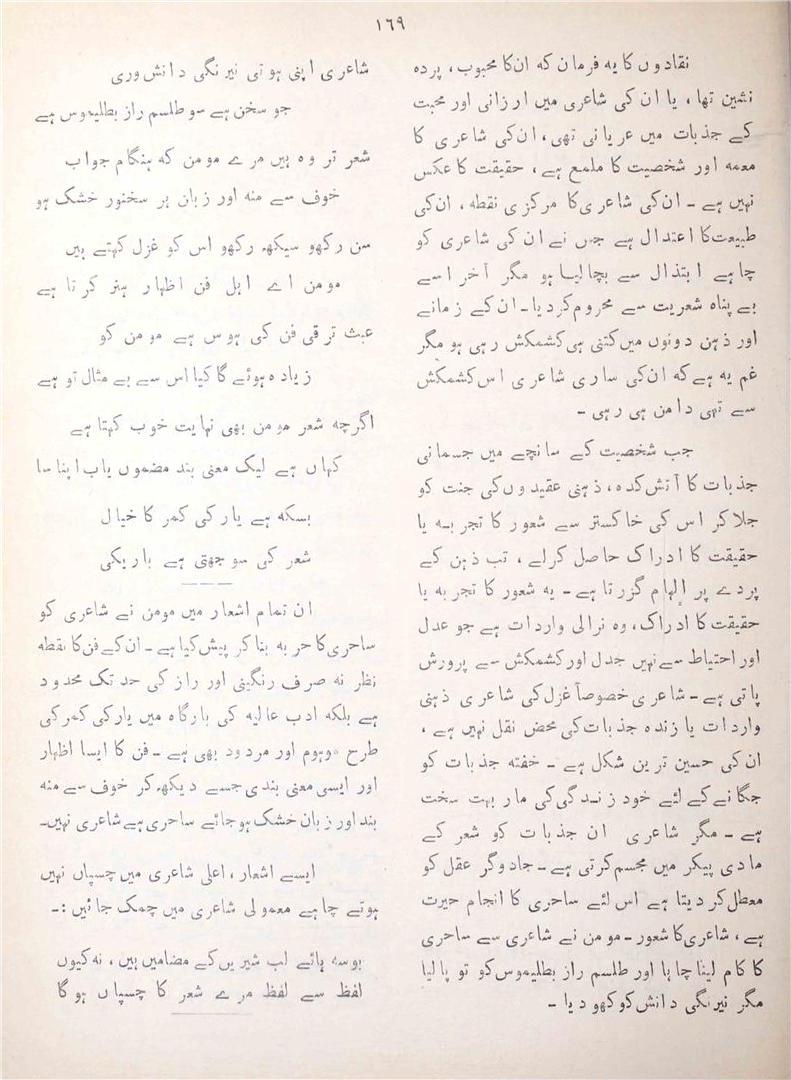 ١٦٩
نقادوں کا یہ فرمان کہ ان کا محبوب، پردہ
نشین تھا، یا ان کی شاعری میں ارزانی اور محبت
کے جذبات میں عریانی تھی، ان کی شاعری کا
معمہ اور شخصیت کا ملمع ہے، حقیقت کا عکس
نہیں ہے ۔ ان کی شاعری کا مرکزی نقطہ، ان کی
طبیعت کا اعتدال ہے جس نے ان کی شاعری کو
چاہے ابتذال سے بچا لیا ہو مگر آخر اسے
بے پناہ شعریت سے محروم کر دیا ۔ ان کے زمانے
اور ذہن دونوں میں کتنی ہی کشمکش رہی ہو مگر
غم یہ ہے کہ ان کی ساری شاعری اس کشمکش
سے تہی دامن ہی رہی ۔
جب شخصیت کے سانچے میں جسمانی
جذبات کا آتش کدہ، ذہنی عقیدوں کی جنت کو
جلا کر اس کی خاکستر سے شعور کا تجربہ یا
حقیقت کا ادراک حاصل کرلے، تب ذہن کے
پردے پر اِلہام گزرتا ہے ۔ یہ شعور کا تجربہ یا
حقیقت کا ادراک، وہ نرالی واردات ہے جو عدل
اور احتیاط سے نہیں جدل اور کشمکش سے پرورش
پاتی ہے ۔ شاعری خصوصاً غزل کی شاعری ذہنی
واردات یا زندہ جذبات کی محض نقل نہیں ہے،
ان کی حسین ترین شکل ہے ۔ خفتہ جذبات کو
جگانے کے لئے خود زندگی کی مار بہت سخت
ہے ۔ مگر شاعری ان جذبات کو شعر کے
مادی پیکر میں مجسم کرتی ہے ۔ جادوگر عقل کو
معطل کر دیتا ہے اس لئے ساحری کا انجام حیرت
ہے، شاعری کا شعور ۔ مومن نے شاعری سے ساحری
کا کام لینا چاہا اور طلسم راز بطلیموس کو تو پا لیا
مگر نیرنگی دانش کو کھو دیا ۔
شاعری اپنی ہوتی نیرنگی دانش وری
جو سخن ہے سو طلسم راز بطلیموس ہے
شعر تر وہ ہیں مرے مومن کہ ہنگام جواب
خوف سے منہ اور زبان ہر سخنور خشک ہو
سن رکھو سیکھ رکھو اس کو غزل کہتے ہیں
مومن اے اہل فن اظہار ہنر کرتا ہے
عبث ترقی فن کی ہوس ہے مومن کو
زیادہ ہوئے گا کیا اس سے بے مثال تو ہے
اگرچہ شعر مومن بھی نہایت خوب کہتا ہے
کہاں ہے لیک معنی بند مضموں یاب اپنا سا
بسکہ ہے یار کی کمر کا خیال
شعر کی سوجھتی ہے باریکی
ان تمام اشعار میں مومن نے شاعری کو
ساحری کا حربہ بنا کر پیش کیا ہے ۔ ان کے فن کا نقطہ
نظر نہ صرف رنگینی اور راز کی حد تک محدود
ہے بلکہ ادب عالیہ کی بارگاہ میں یار کی کمر کی
طرح موہوم اور مردود بھی ہے ۔ فن کا ایسا اظہار
اور ایسی معنی بندی جسے دیکھ کر خوف سے منہ
بند اور زبان خشک ہو جائے ساحری ہے شاعری نہیں۔
ایسے اشعار، اعلیٰ شاعری میں چسپاں نہیں
ہوتے چاہے معمولی شاعری میں چمک جائیں :۔
بوسہ ہائے لب شیریں کے مضامیں ہیں، نہ کیوں
لفظ سے لفظ مرے شعر کا چسپاں ہوگا